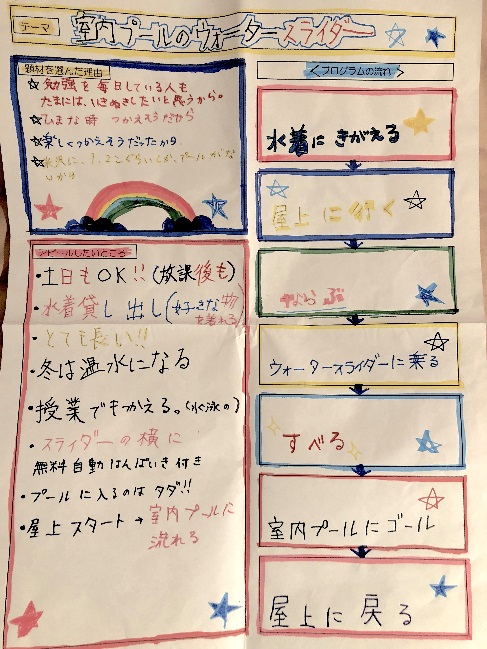 テーマ
室内プールのウォータースライダー
題材を選んだ理由
☆勉強を毎日している人も
たまには、いきぬきしたいと思うから。
☆ひまな時 つかえそうだから
☆楽しくつかえそうだったから
☆米沢に、1、2こぐらいしか、プールがな
いから
アピールしたいところ
・土日もOK!!(放課後も)
・水着貸し出し(好きな物
を着れる)
・とても長い!!
・冬は温水になる
・授業でもつかえる。(水泳の)
・スライダーの横に
無料自動はんばいき付き
・プールに入るのはタダ!!
・屋上スタート→室内プールに
流れる
<プログラムの流れ>
水着に きがえる
屋上に行く
ならぶ
ウォータースライダーに乗る
すべる
室内プールにゴール
屋上に戻る